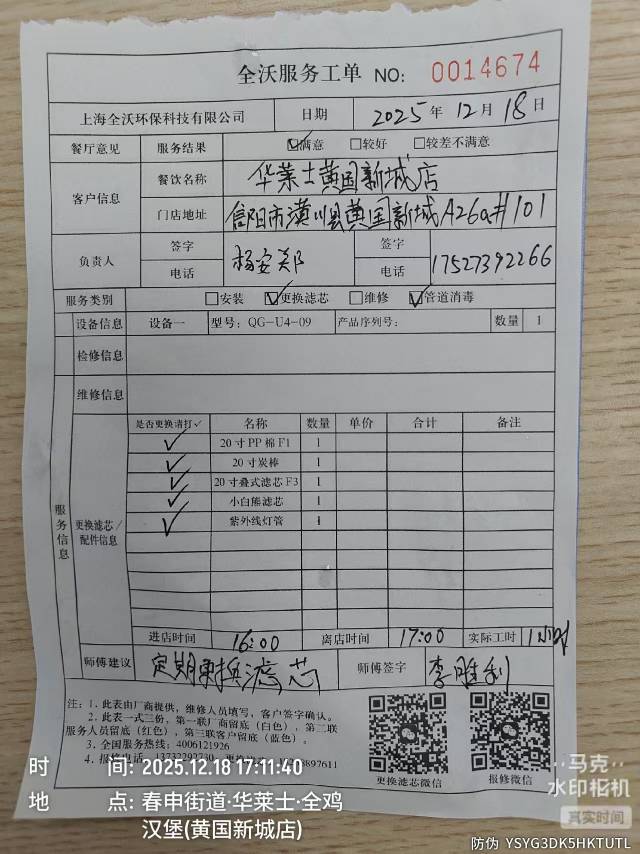 全沃服务工单 NO: 0014674
上海全沃环保科技有限公司 日期 2025年12月18日
餐厅意见 服务结果 ☑满意 □较好 □较差不满意
客户信息 餐饮名称 华莱士黄国新城店
门店地址 信阳市潢川县黄国新城A26a#101
负责人 签字 杨安郑 签字
电话 电话 17527392266
服务类别 □安装 ☑更换滤芯 □维修 ☑管道消毒
服务信息
设备信息 设备一 型号: QG-U4-09 产品序列号: 数量 1
检修信息
维修信息
更换滤芯/配件信息
是否更换请打✓ 名称 数量 单价 合计 备注
✓ 20寸PP棉F1 1
✓ 20寸炭棒 1
✓ 20寸叠式滤芯F3 1
✓ 小白熊滤芯 1
✓ 紫外线灯管 1
进店时间 16:00 离店时间 17:00 实际工时 1小时
师傅建议 定期更换滤芯 师傅签字 李胜利
注: 1. 此表由厂商提供, 维修人员填写, 客户签字确认。
2. 此表一式三份, 第一联厂商留底(白色), 第二联
服务人员留底(红色), 第三联客户留底(蓝色)。
3. 全国服务热线: 4006121926
4. 报修电话:
更换滤芯微信 报修微信
时 间: 2025.12.18 17:11:40
地 点: 春申街道·华莱士·全鸡
汉堡(黄国新城店)
马克
水印相机
真实时间
防伪 YSYG3DK5HKTUTL